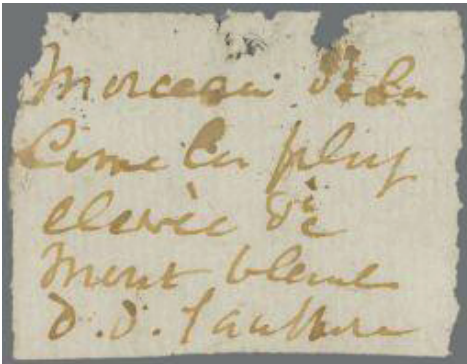 Morceau de la
Cime la plus
elevée de
Mont blanc
D. D. Saussure